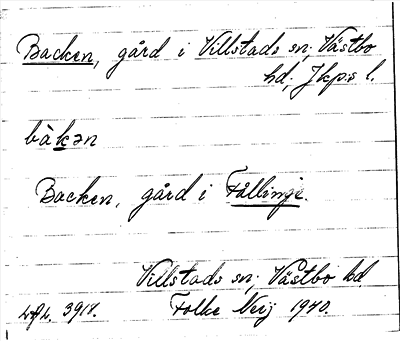 Backen, gård i Villstads sn, Västbo
hd, Jkps l.
bàkən
Backen, gård i Fållinge.
Villstads sn, Västbo hd
3917. Folke Neij 1940.